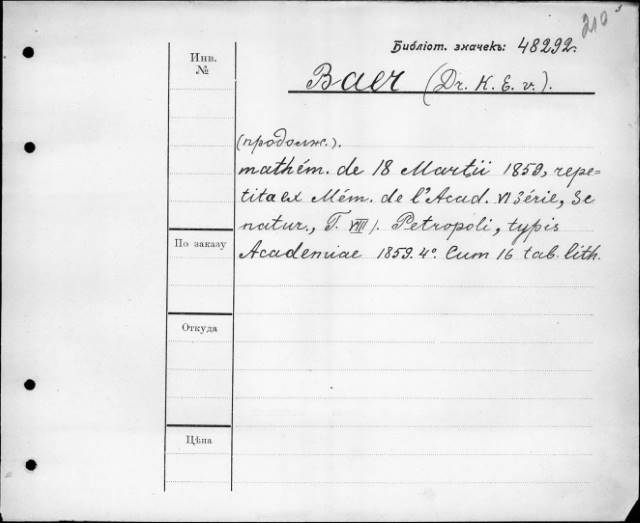 210
Библіот. значекъ: 48292.
Инв.
№
Baer (Dr. K. E. v.).
(продолж.).
mathém. de 18 Martii 1859, repe=
tita ex Mém. de l'Acad. VI Série, Sc
natur., T. VIII). Petropoli, typis
Academiae 1859. 4°. Cum 16 tab. lith.
По заказу
Откуда
Цѣна